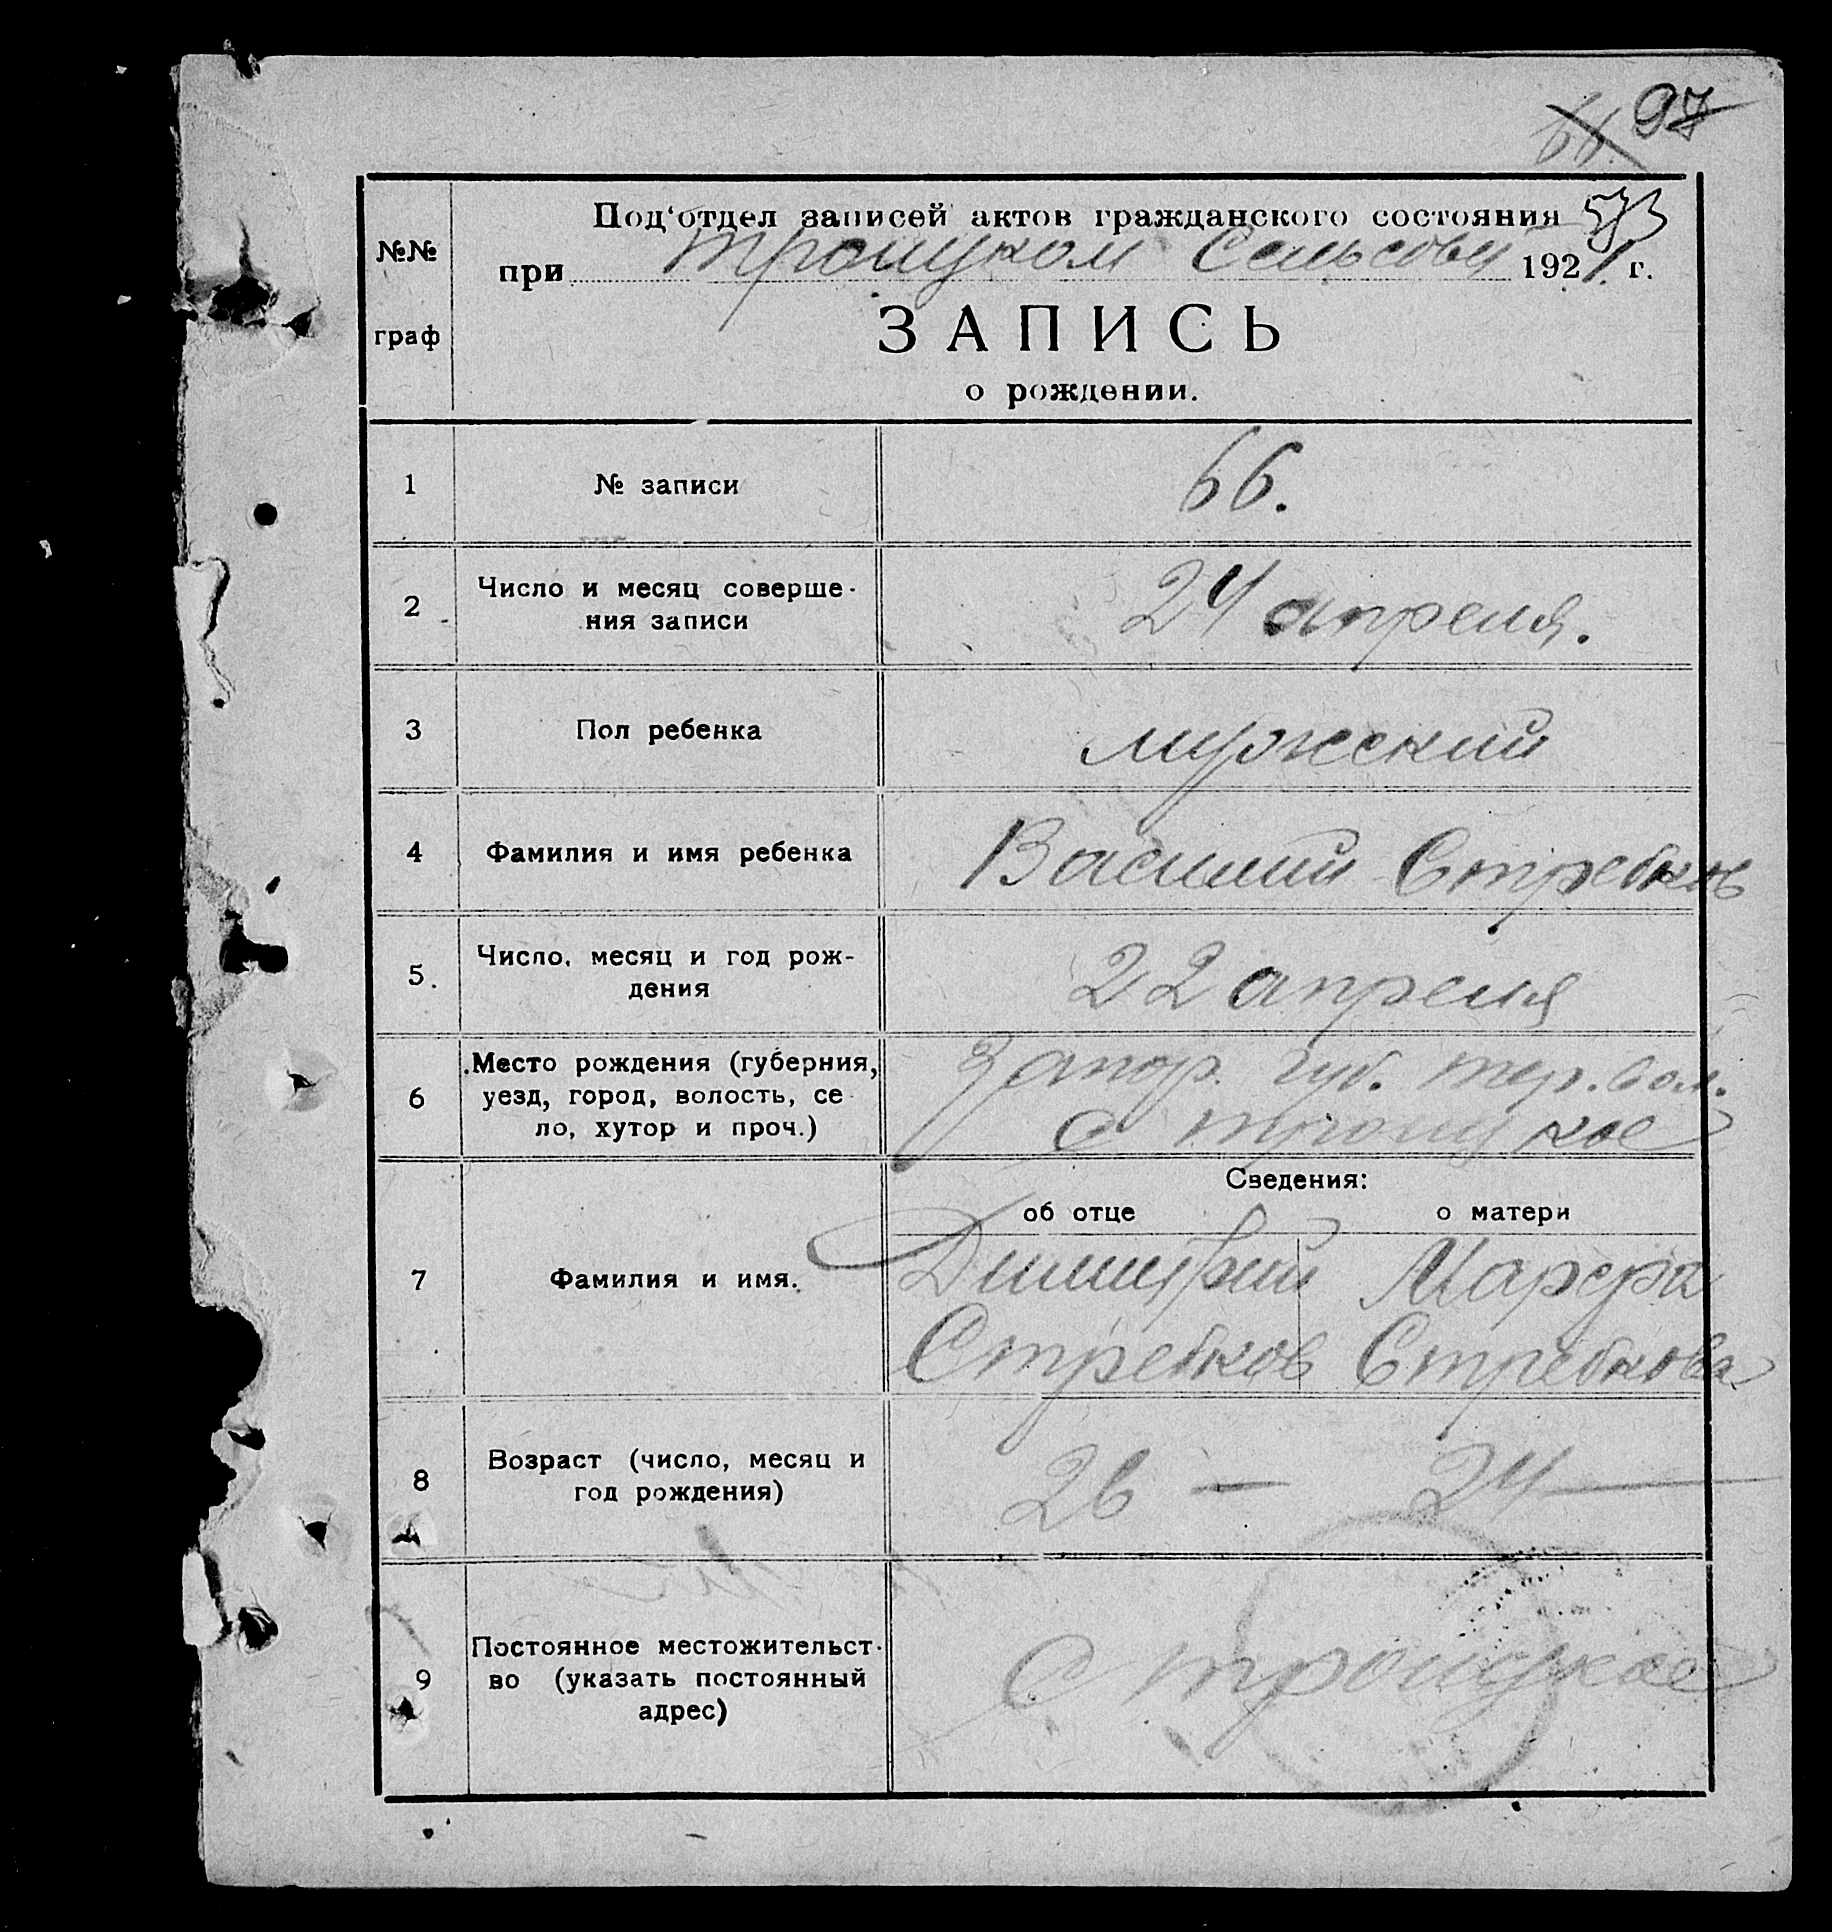 66. 97
Под'отдел записей актов гражданского состояния 573
№№ при Троицком Сельсове 1921 г.
граф
ЗАПИСЬ
о рождении.
1 № записи 66.
2 Число и месяц соверше-
ния записи 24 апреля.
3 Пол ребенка мужский
4 Фамилия и имя ребенка Василий Стребков
5. Число, месяц и год рож-
дения 22 апреля
6 Место рождения (губерния, Запор. губ. тер. вол.
уезд, город, волость, се
ло, хутор и проч.) с троицкое
Сведения:
об отце о матери
7 Фамилия и имя. Димитрий Марфа
Стребков Стребкова
8 Возраст (число, месяц и
год рождения) 26 — 24 —
9 Постоянное местожительст-
во (указать постоянный с троицкое
адрес)